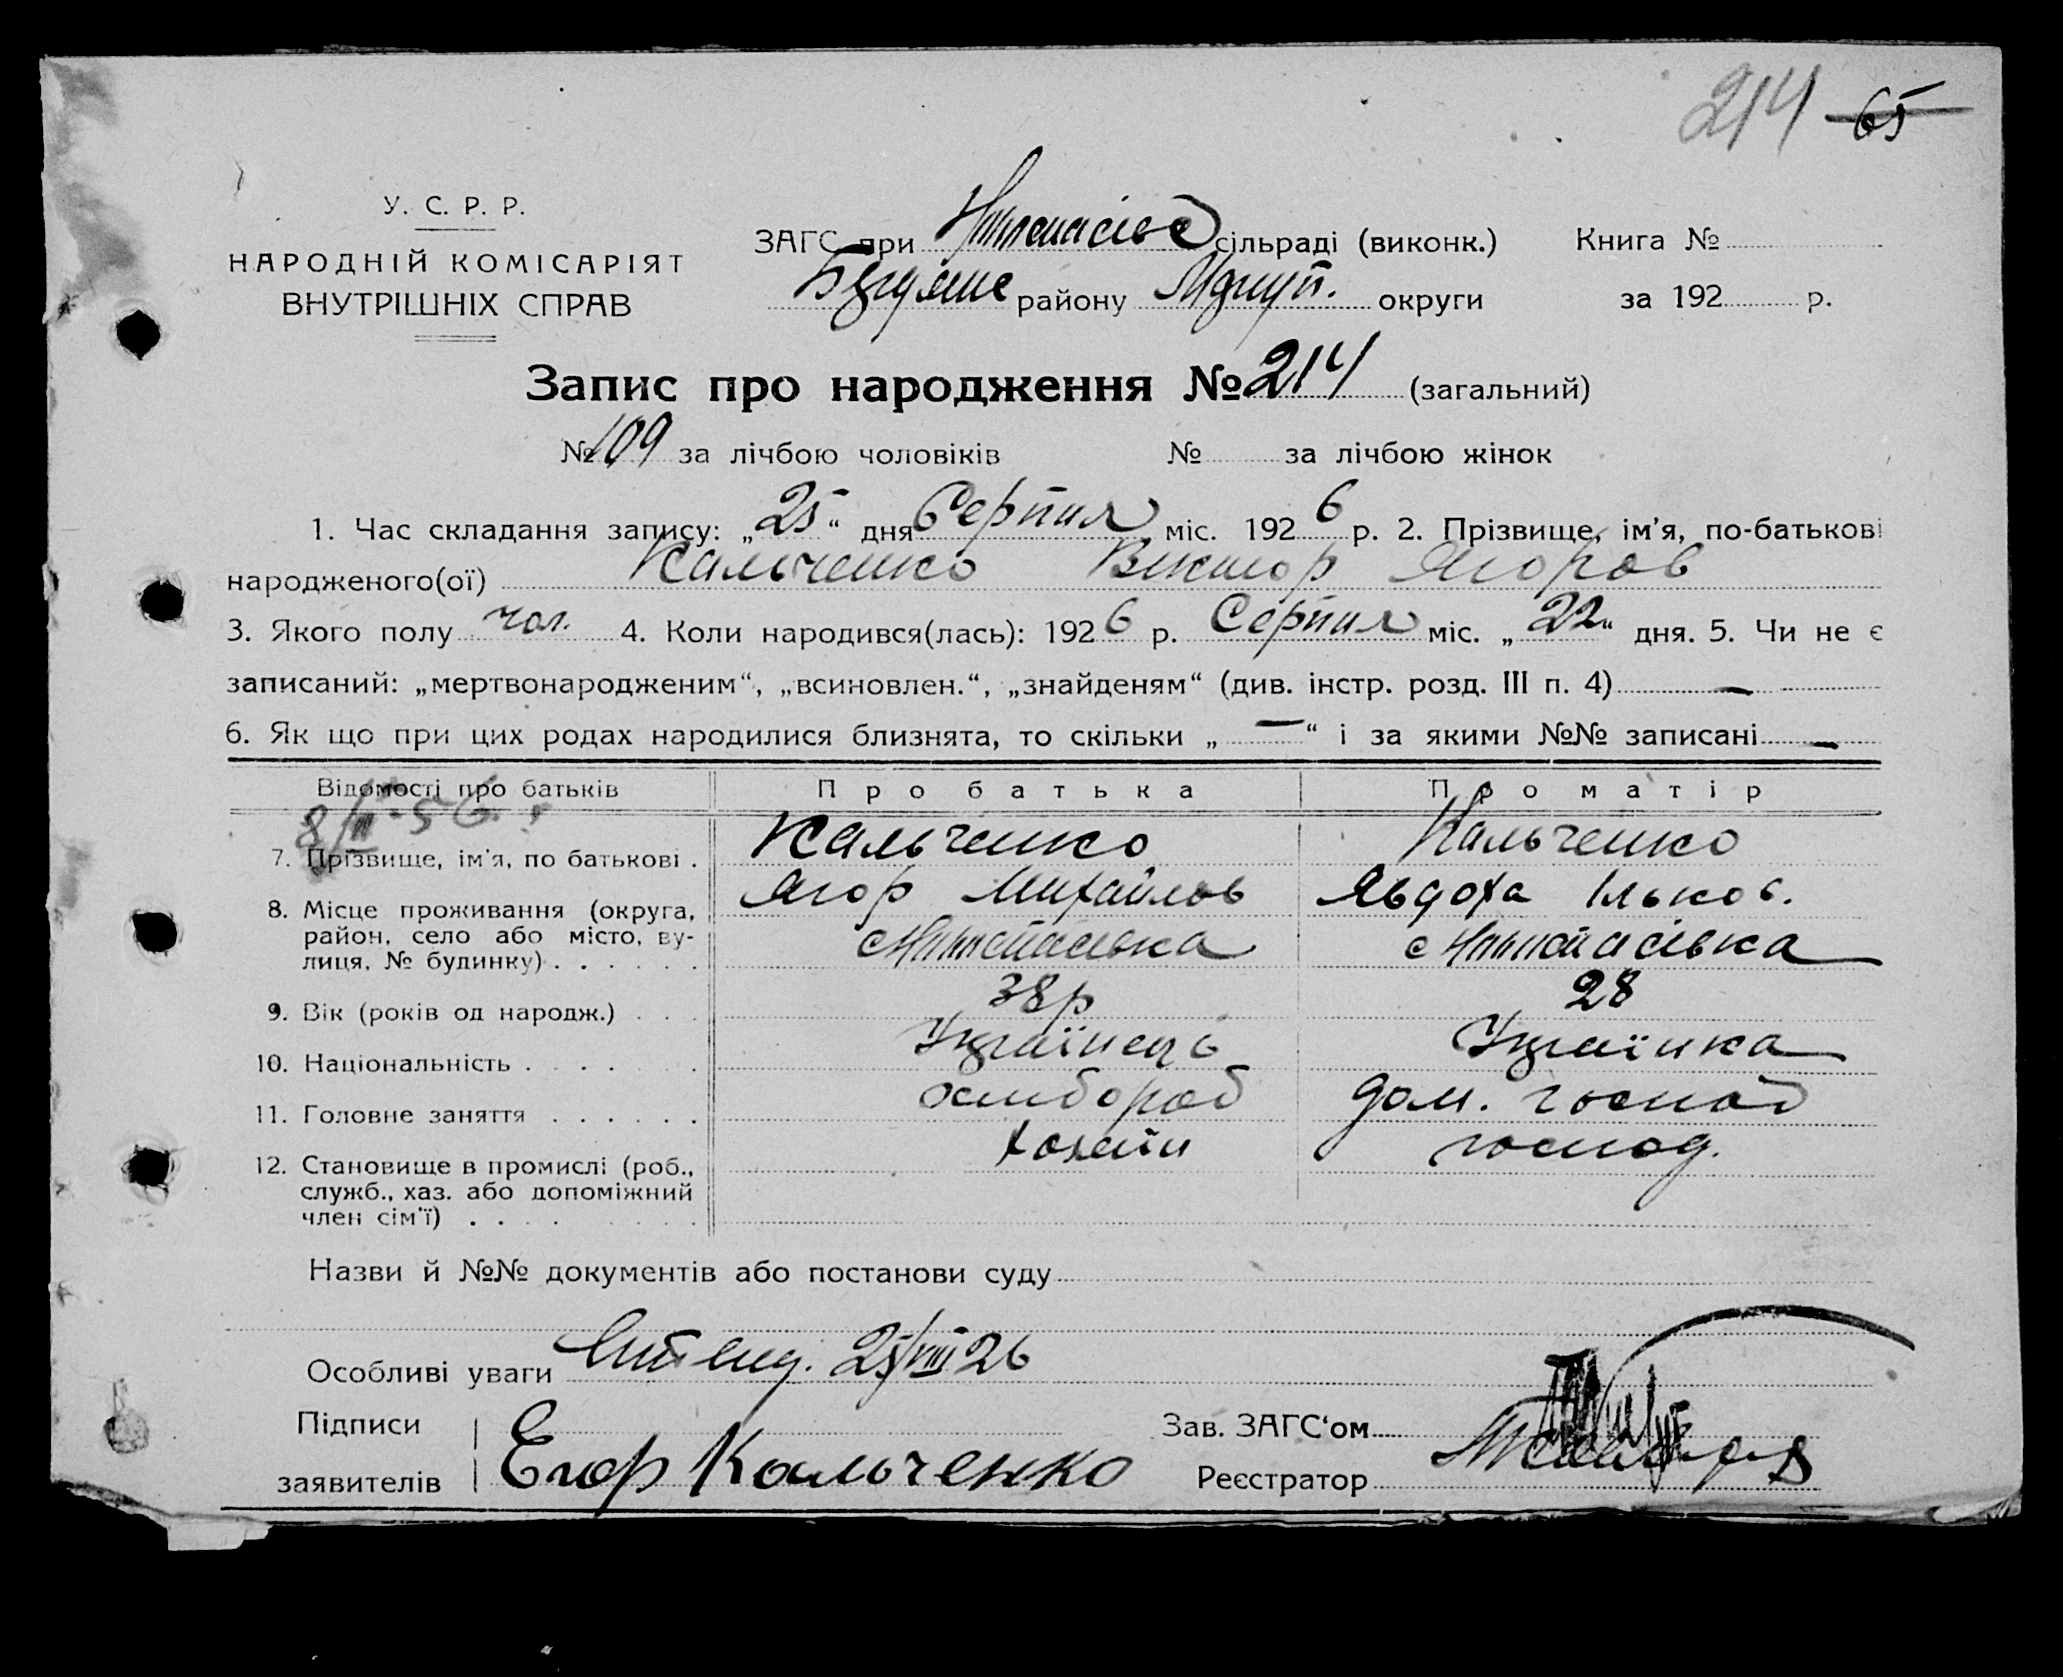 214 65
У. С. Р. Р.
НАРОДНІЙ КОМІСАРІЯТ
ВНУТРІШНІХ СПРАВ
ЗАГС при сільраді (виконк.) Книга №
району округи за 192 р.
Запис про народження № 214 (загальний)
№ 109 за лічбою чоловіків № за лічбою жінок
1. Час складання запису: „25“ дня Серпня міс. 1926 р. 2. Прізвище, ім'я, по-батькові
народженого(ої) Кальченко Виктор Ягоров
3. Якого полу чол. 4. Коли народився(лась): 1926 р. Серпня міс. „22“ дня. 5. Чи не є
записаний: „мертвонародженим“, „всиновлен.“, „знайденям“ (див. інстр. розд. III п. 4) —
6. Як що при цих родах народилися близнята, то скільки „—“ і за якими №№ записані —
Відомості про батьків Про батька Про матір
7. Прізвище, ім'я, по батькові . Кальченко Кальченко
Ягор Михайлов Явдоха Ільков.
8. Місце проживання (округа,
район, село або місто, ву-
лиця, № будинку) . . . . . .
9. Вік (років од народж.) . . . 38р 28
10. Національність . . . . . . Украінець Украінка
11. Головне заняття . . . . . . хлибороб дом. господ
12. Становище в промислі (роб., хозяін господ.
служб., хаз. або допоміжний
член сім'ї) . . . . . . . .
Назви й №№ документів або постанови суду
Особливі уваги 25/VIII 26
Підписи Зав. ЗАГС‘ом
заявителів Егор Кальченко Реєстратор